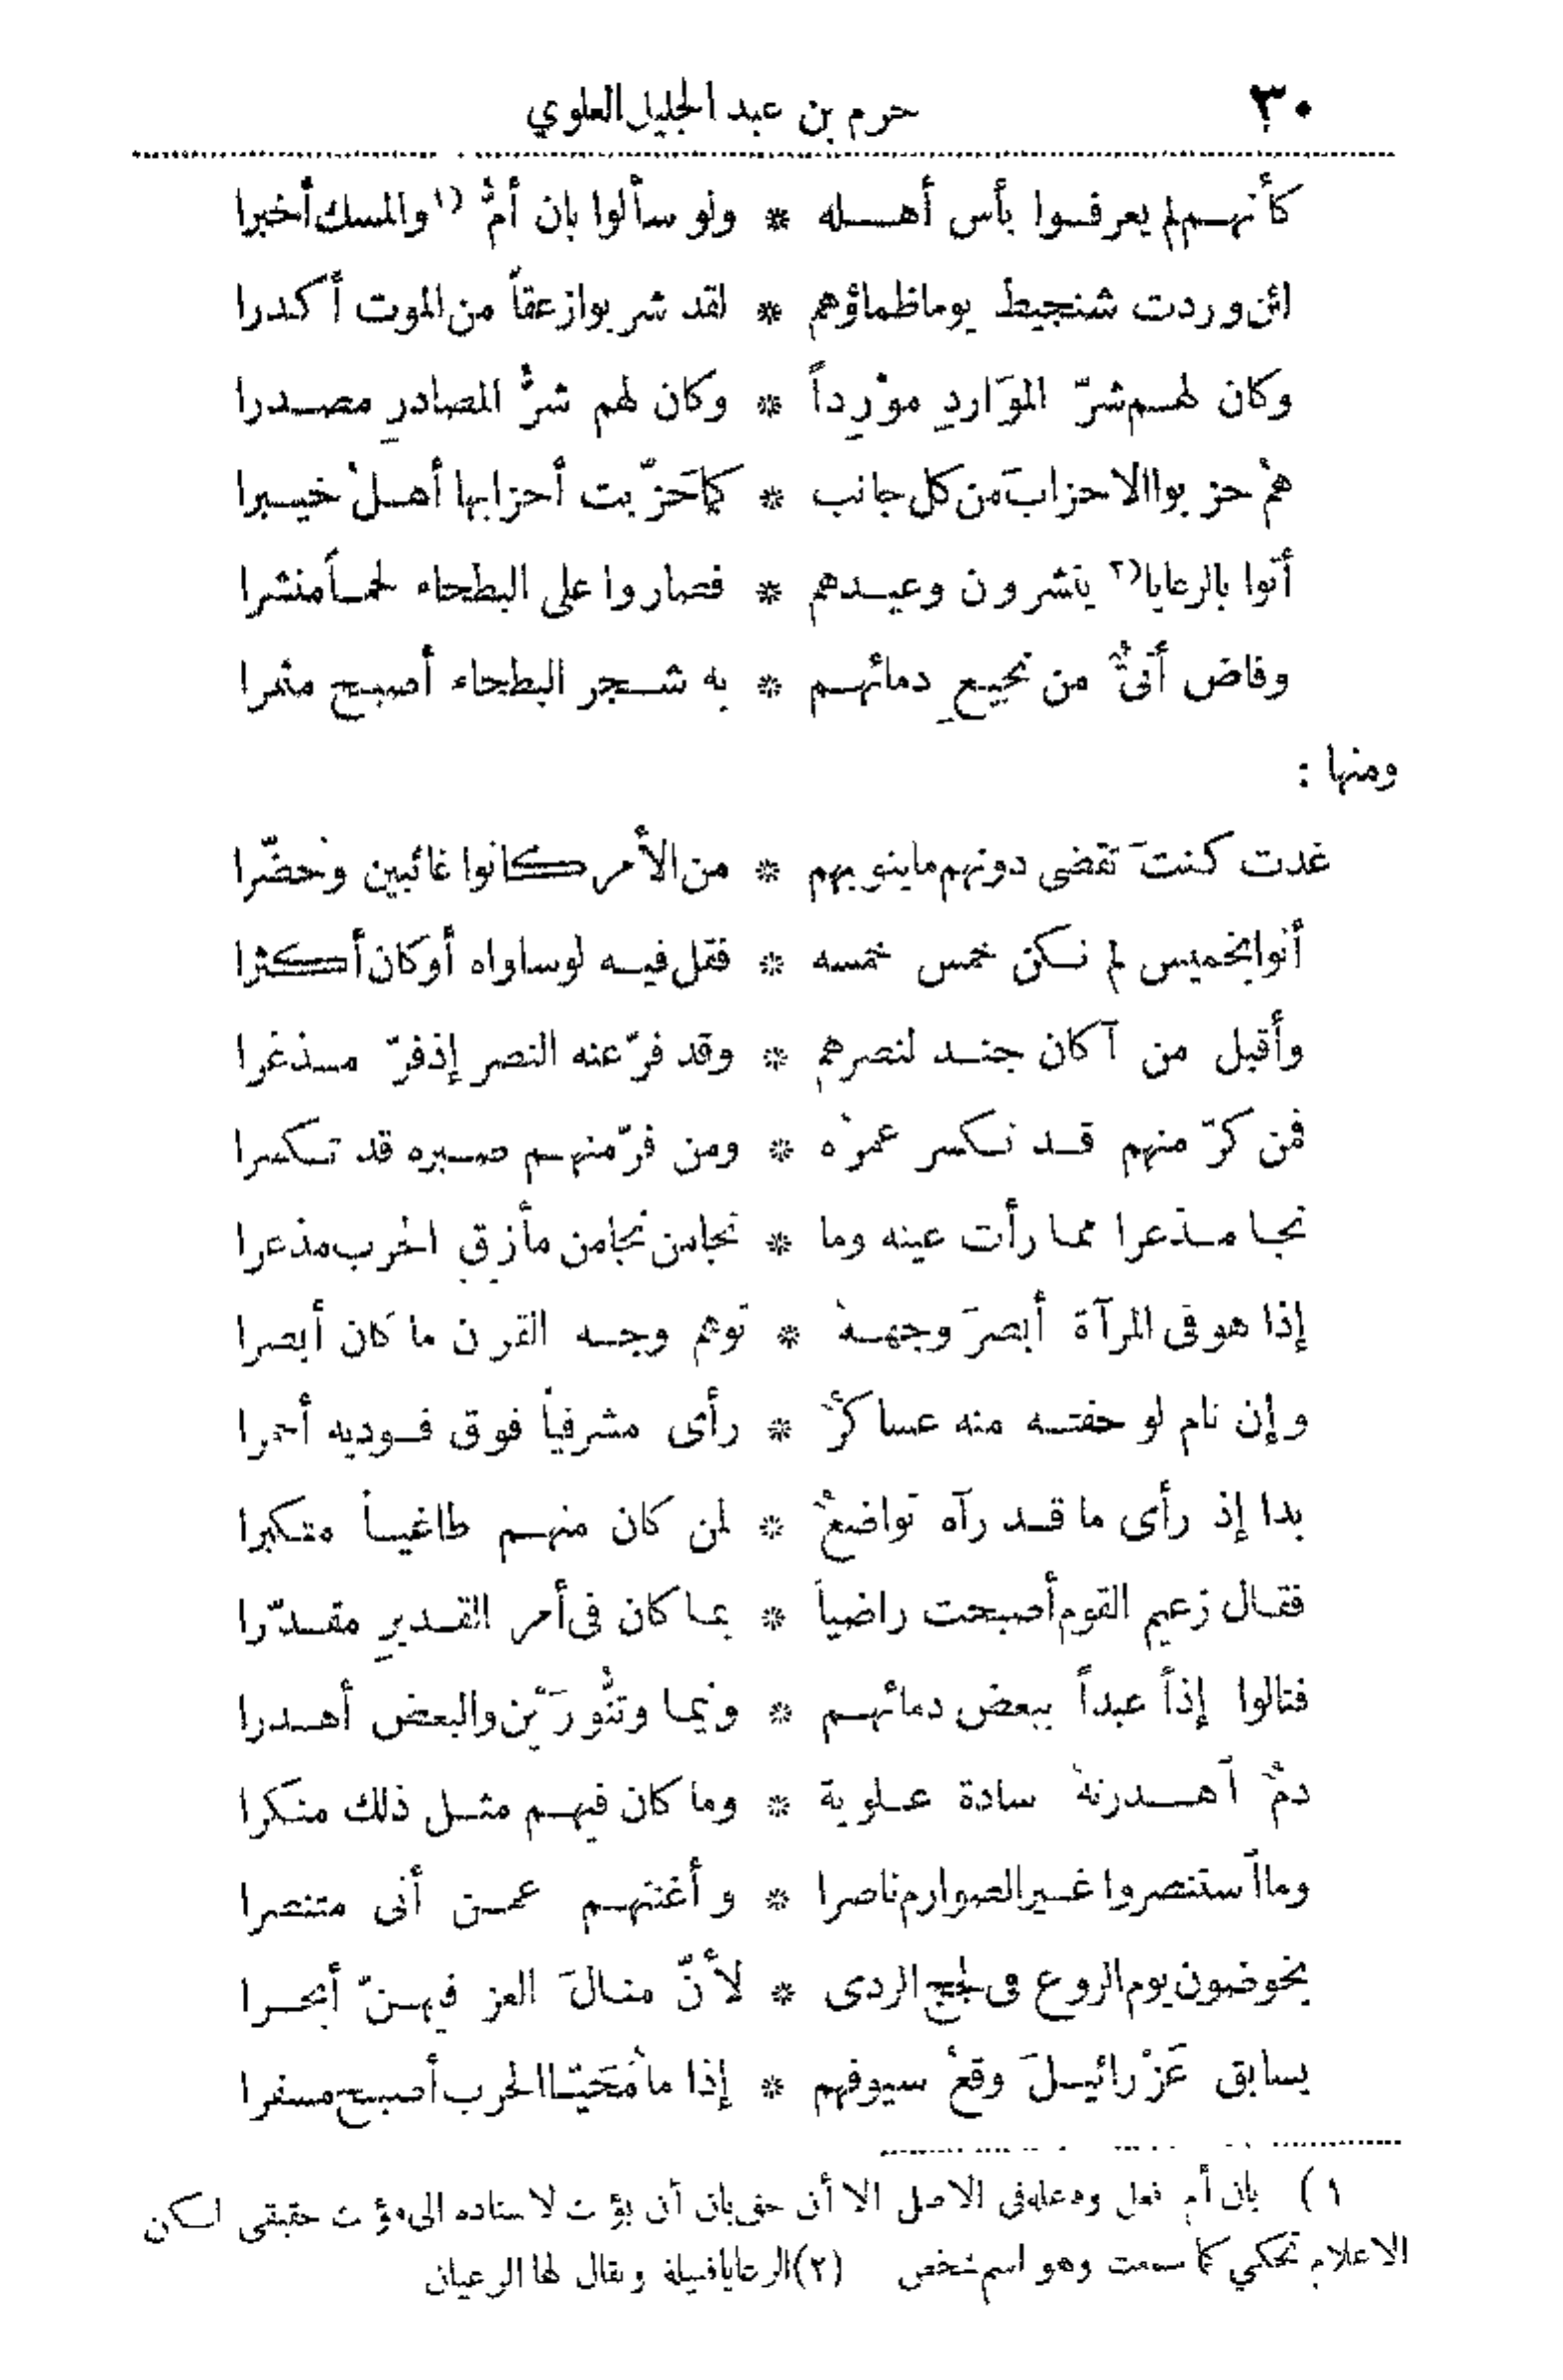 ٣٠ حرم بن عبد الجليل العلوي
كأنهم لم يعرفوا بأس أهله * ولو سألوا بان أمُّ (١ والمسك أخبرا
لئن وردت شنجيط يوما ظماؤهم * لقد شربوا زعقاً من الموت أكدرا
وكان لهم شرّ المَوَاردِ موْرِداً * وكان لهم شرُّ المصادرِ مصدرا
همْ حزبوا الاحزابَ من كل جانب * كما حَزّبت أحزابها أهلُ خيبرا
أتوا بالرعايا (٢ ينشرون وعيدهم * فصاروا على البطحاء لحماً منشرا
وفاض أتىٌّ من نجيعِ دمائهم * به شجر البطحاء أصبح مثمرا
ومنها :
غدت كنتَ تقضى دونهم ما ينوبهم * من الأمر كانوا غائبين وحضّرا
أتوا بخميس لم نكن خمس خمسه * فقل فيه لو ساواه أو كان أكثرا
وأقبل من آكان جند لنصرهم * وقد فرّ عنه النصر إذ فرّ مدبرا
فمن كرّ منهم قد تكسر عمرُه * ومن فرّ منهم صبره قد تكسرا
نجا مذعرا مما رأت عينه وما * نجا من نجا من مأزقِ الحرب مذعرا
إذا هو فى المرآة أبصرَ وجههُ * توهم وجه القرن ما كان أبصرا
وإن نام لو حفته منه عساكرٌ * رأى مشرفياً فوق فوديه أحمرا
بدا إذ رأى ما قد رآه تواضعٌ * لمن كان منهم طاغياً متكبرا
فقال زعيم القوم أصبحت راضياً * بما كان فى أمر القديرِ مقدّرا
فنالوا إذاً عبداً ببعض دمائهم * ونيما وتنُّورَيْن والبعض أهدرا
دمٌ أهدرتهُ سادة علوية * وما كان فيهم مثل ذلك منكرا
وما استنصروا غير الصوارم ناصرا * وأغنتهم عمن أتى متنصرا
يخوضون يوم الروع فى لجج الردى * لأنّ منالَ العز فيهنّ أبحرا
يسابق عَزْرائيلَ وقعُ سيوفهم * إذا ما مُحَيّا الحرب أصبح مسفرا
١) بان أم فعل وفاعله فى الاصل الا أن حق بان أن يؤنث لاسناده الى مؤنث حقيقى لكن
الاعلام تحكي كما سمعت وهو اسم شخص (٢) الرعايا قبيلة ويقال لها الرعيان